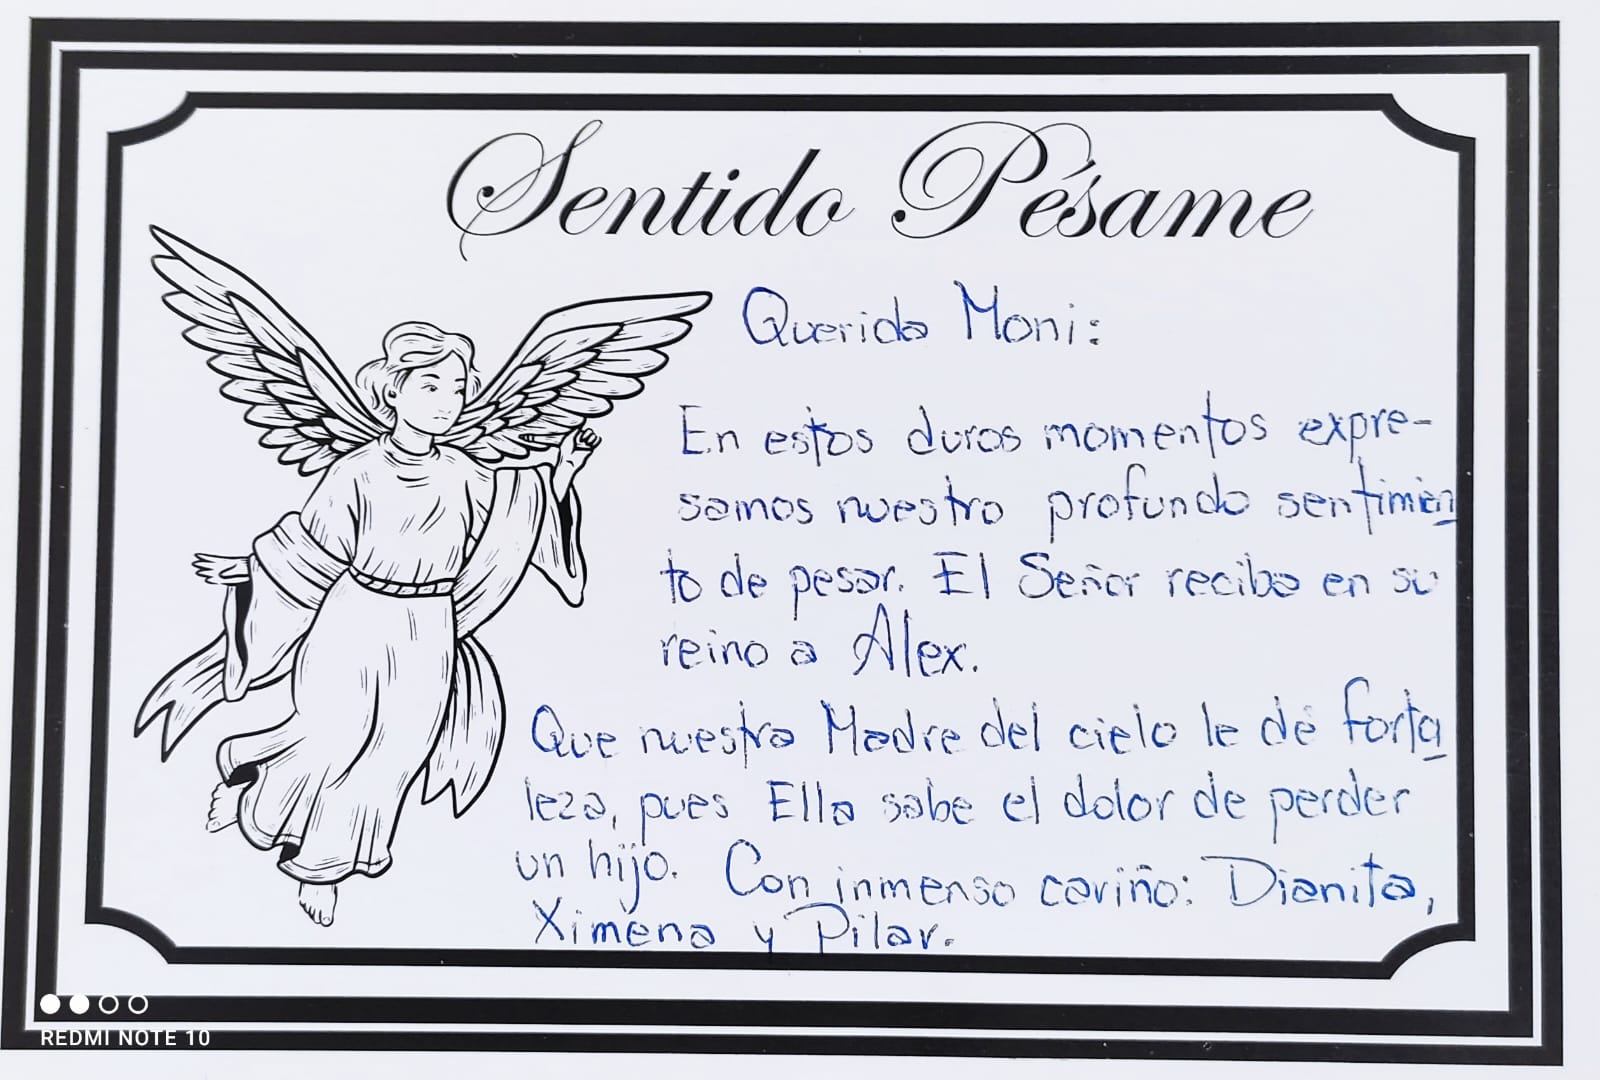 Sentido Pésame
Querida Moni:
En estos duros momentos expre-
samos nuestro profundo sentimien
to de pesar. El Señor reciba en su
reino a Alex.
Que nuestra Madre del cielo le dé forta
leza, pues Ella sabe el dolor de perder
un hijo. Con inmenso cariño: Dianita,
Ximena y Pilar.
REDMI NOTE 10